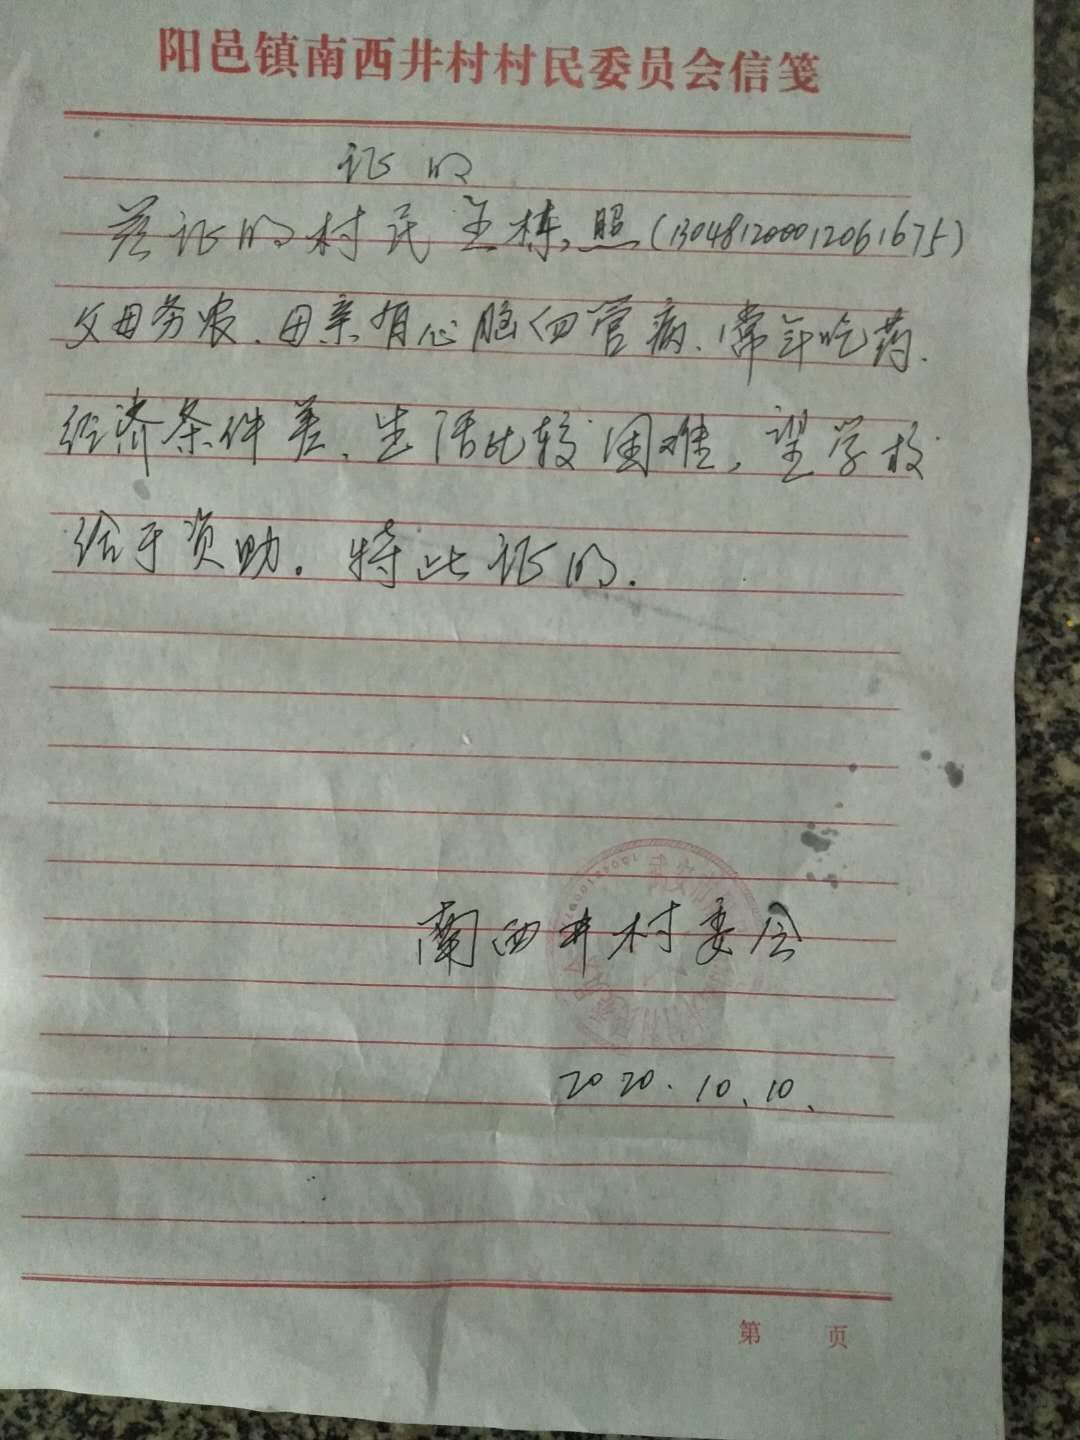 阳邑镇南西井村村民委员会信笺
证明
兹证明村民王栋照(130481200012061675)
父母务农、母亲有心脑血管病、常年吃药.
经济条件差、生活比较困难,望学校
给于资助。特此证明.
南西井村委会
2020.10.10.
第 页